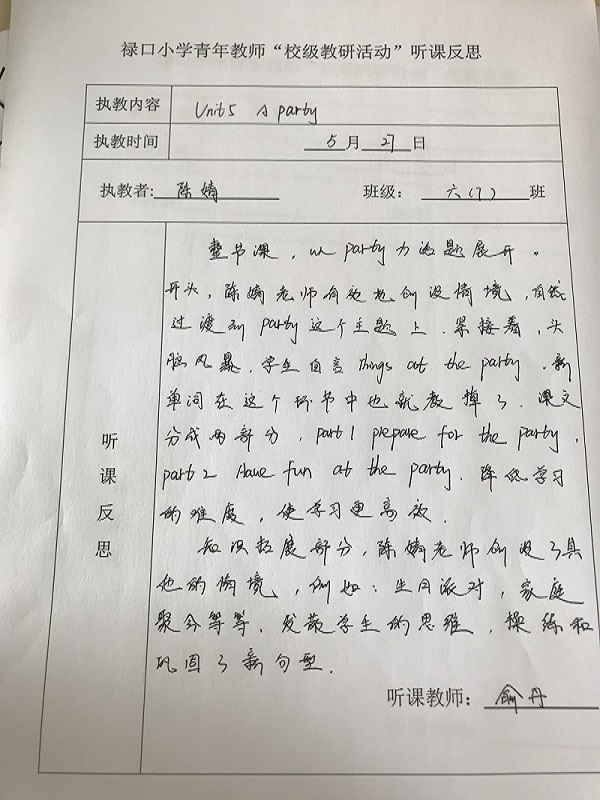 禄口小学青年教师“校级教研活动”听课反思
执教内容 Unit5 A party
执教时间 5月27日
执教者:陈婧 班级: 六(7)班
整节课，以party为话题展开。
开头，陈婧老师有效地创设情境，自然
过渡到party这个主题上.紧接着，头
脑风暴.学生自言things at the party.新
单词在这个环节中也就教掉了.课文
分成两部分，part1 prepare for the party,
part2 Have fun at the party.降低学习
的难度，使学习更高效.
知识拓展部分，陈婧老师创设了其
他的情境，例如：生日派对，家庭
聚会等等.发散学生的思维，操练和
巩固了新句型.
听课反思
听课教师：俞丹